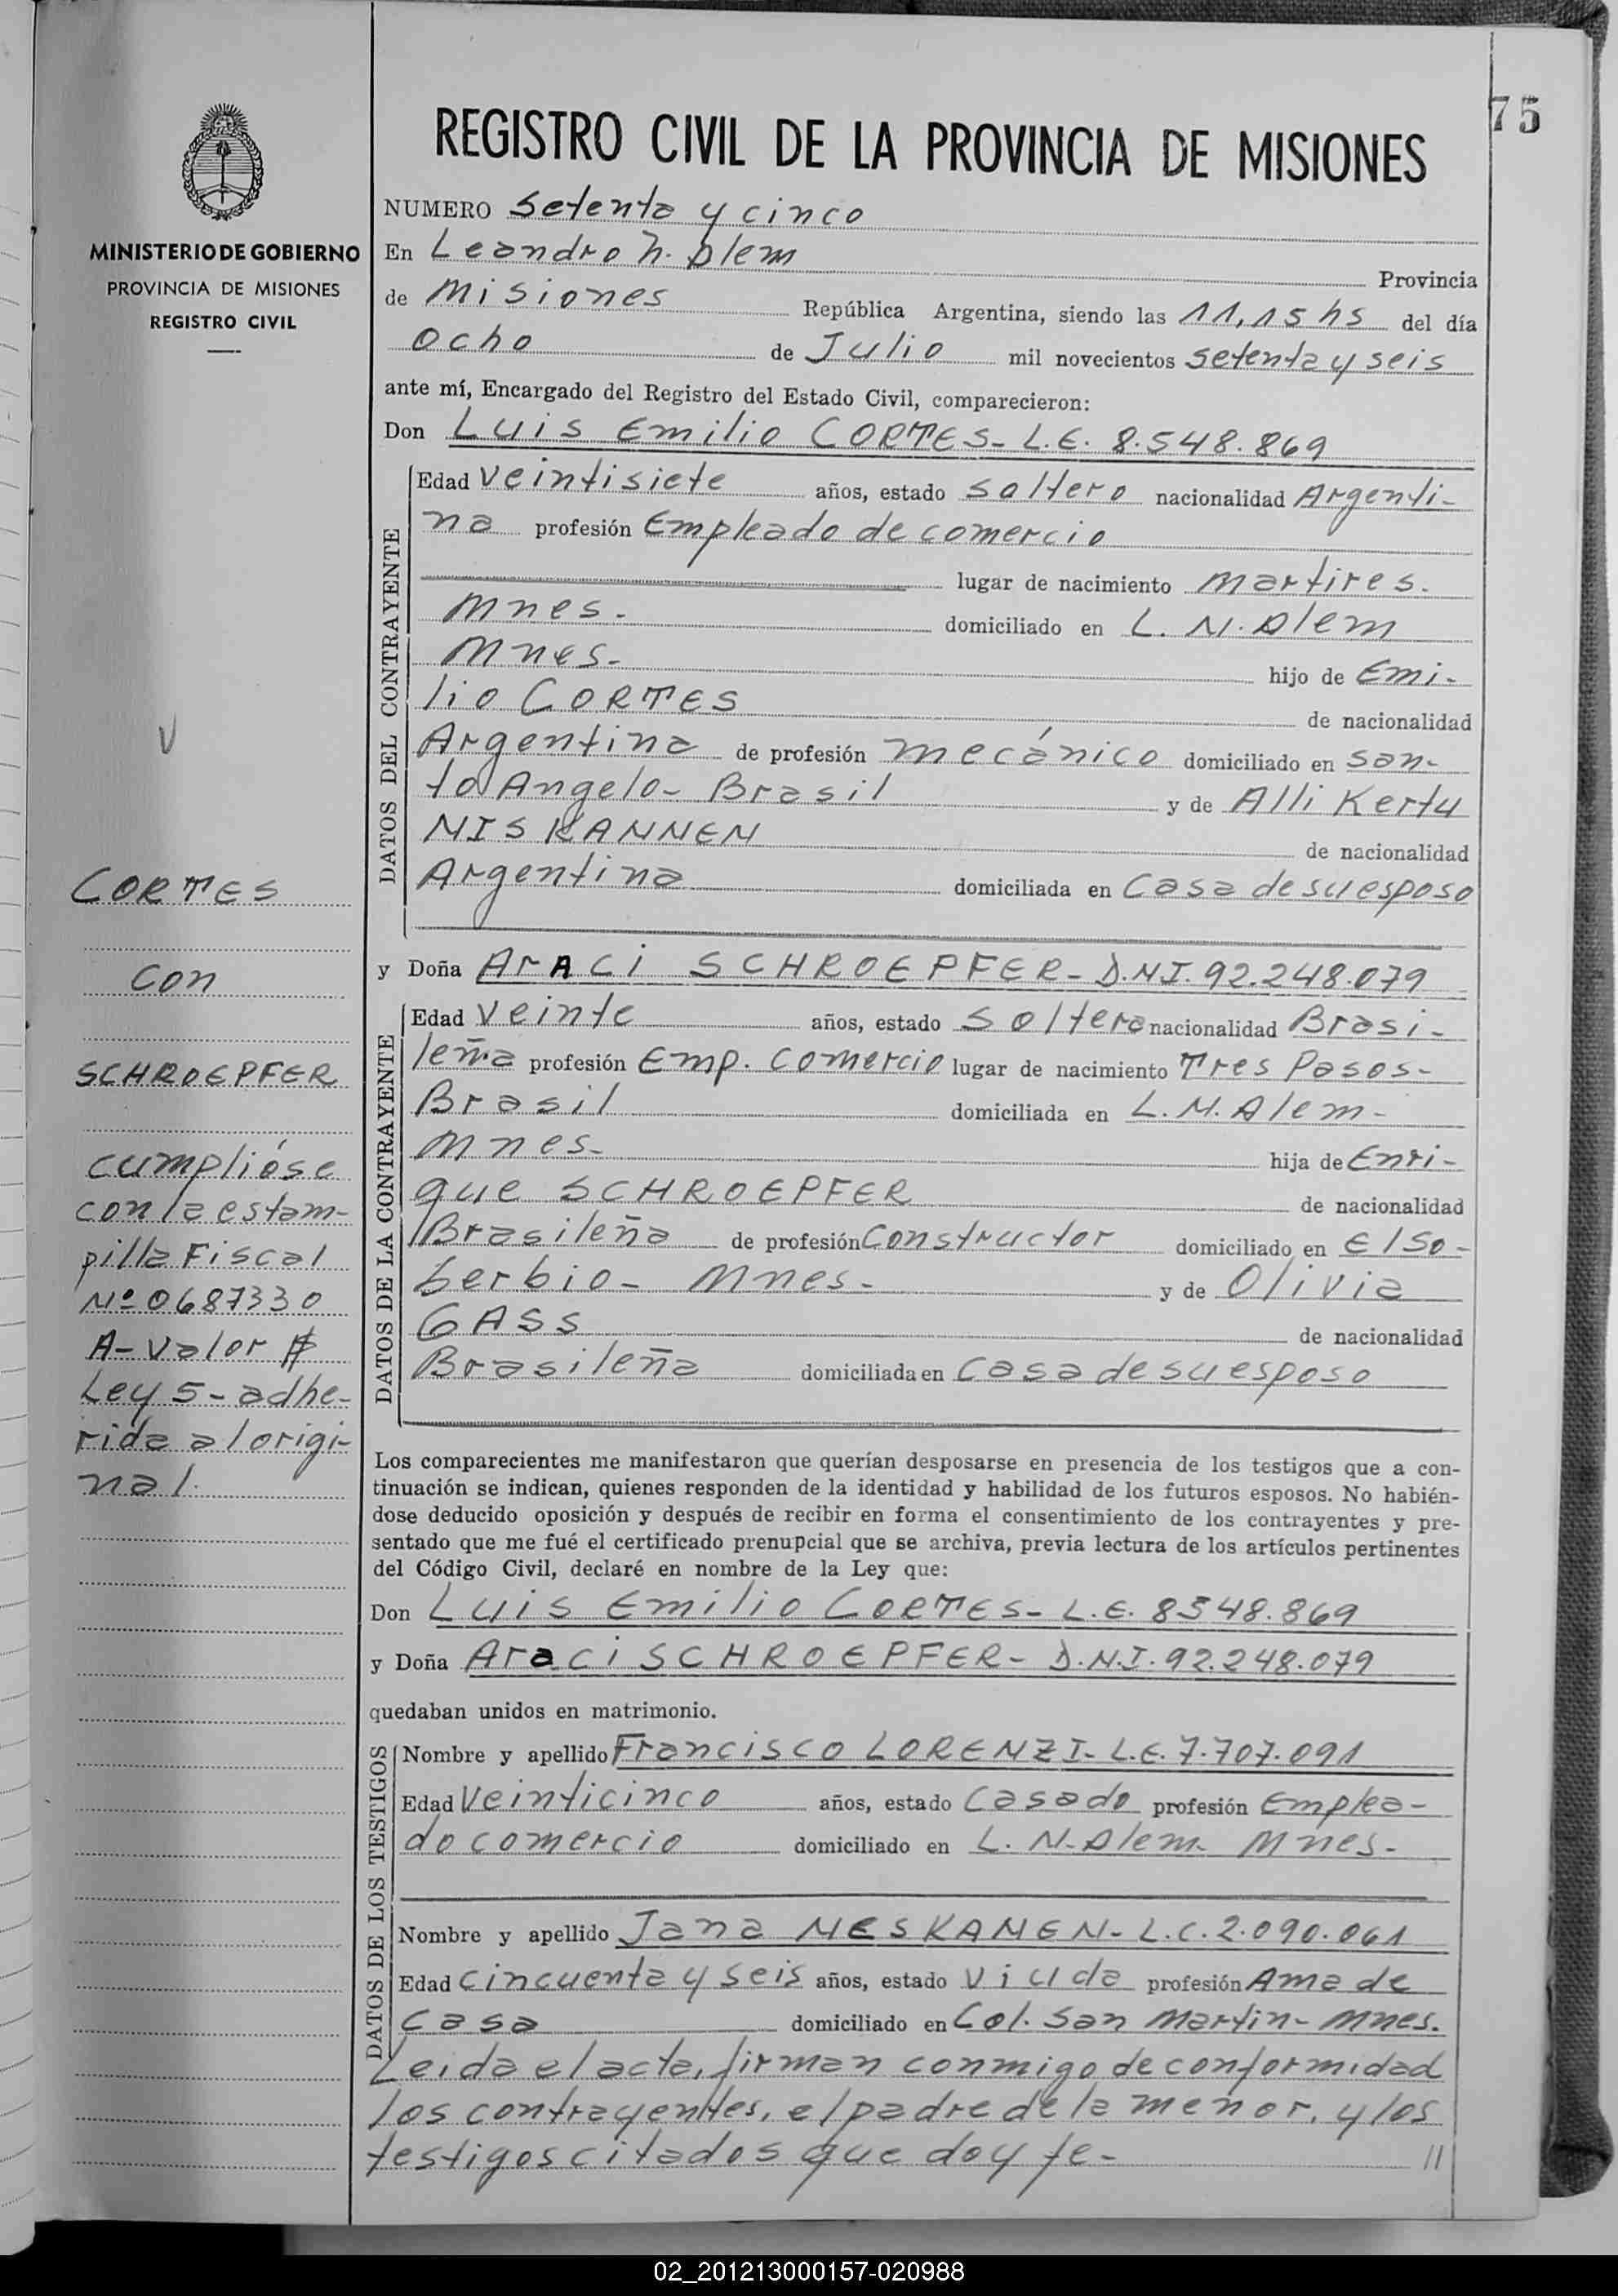 75
REGISTRO CIVIL DE LA PROVINCIA DE MISIONES
MINISTERIO DE GOBIERNO
PROVINCIA DE MISIONES
REGISTRO CIVIL
NUMERO Setenta y cinco
En Leandro N. Alem Provincia
de Misiones República Argentina, siendo las 11,15 hs del día
Ocho de Julio mil novecientos setenta y seis
ante mí, Encargado del Registro del Estado Civil, comparecieron:
Don Luis Emilio CORTES- L.E. 8.548.869
DATOS DEL CONTRAYENTE
Edad Veintisiete años, estado Soltero nacionalidad Argenti-
na profesión Empleado de comercio
lugar de nacimiento Martires.
Mnes.- domiciliado en L. N. Alem
Mnes.- hijo de Emi-
lio CORTES de nacionalidad
Argentina de profesión mecánico domiciliado en San-
to Angelo- Brasil y de Alli Kertu
NISKANNEN de nacionalidad
Argentina domiciliada en Casa de su esposo
y Doña ArACi SCHROEPFER- D.N.I. 92.248.079
DATOS DE LA CONTRAYENTE
Edad Veinte años, estado Soltera nacionalidad Brasi-
leña profesión Emp. Comercio lugar de nacimiento Tres Pasos-
Brasil domiciliada en L. N. Alem-
Mnes.- hija de Enri-
que SCHROEPFER de nacionalidad
Brasileña de profesión Constructor domiciliado en El So-
berbio- Mnes.- y de Olivia
GASS de nacionalidad
Brasileña domiciliada en Casa de su esposo
V
CORTES
con
SCHROEPFER
cumplióse
con la estam-
pilla Fiscal
Nº 0687330
A- Valor $
Ley 5- adhe-
rida al origi-
nal.
Los comparecientes me manifestaron que querían desposarse en presencia de los testigos que a con-
tinuación se indican, quienes responden de la identidad y habilidad de los futuros esposos. No habién-
dose deducido oposición y después de recibir en forma el consentimiento de los contrayentes y pre-
sentado que me fué el certificado prenupcial que se archiva, previa lectura de los artículos pertinentes
del Código Civil, declaré en nombre de la Ley que:
Don Luis Emilio CORTES- L.E. 8548.869
y Doña Araci SCHROEPFER- D.N.I. 92.248.079
quedaban unidos en matrimonio.
DATOS DE LOS TESTIGOS
Nombre y apellido Francisco LORENZI- L.E. 7.707.091
Edad Veinticinco años, estado Casado profesión Emplea-
do comercio domiciliado en L. N. Alem- Mnes.-
Nombre y apellido Jana NESKANEN- L.C. 2.090.061
Edad cincuenta y seis años, estado Viuda profesión Ama de
casa domiciliado en Col. San Martin- Mnes.
Leida el acta, firman conmigo de conformidad
los contrayentes, el padre de la menor, y los
testigos citados que doy fe.- //
02_201213000157-020988